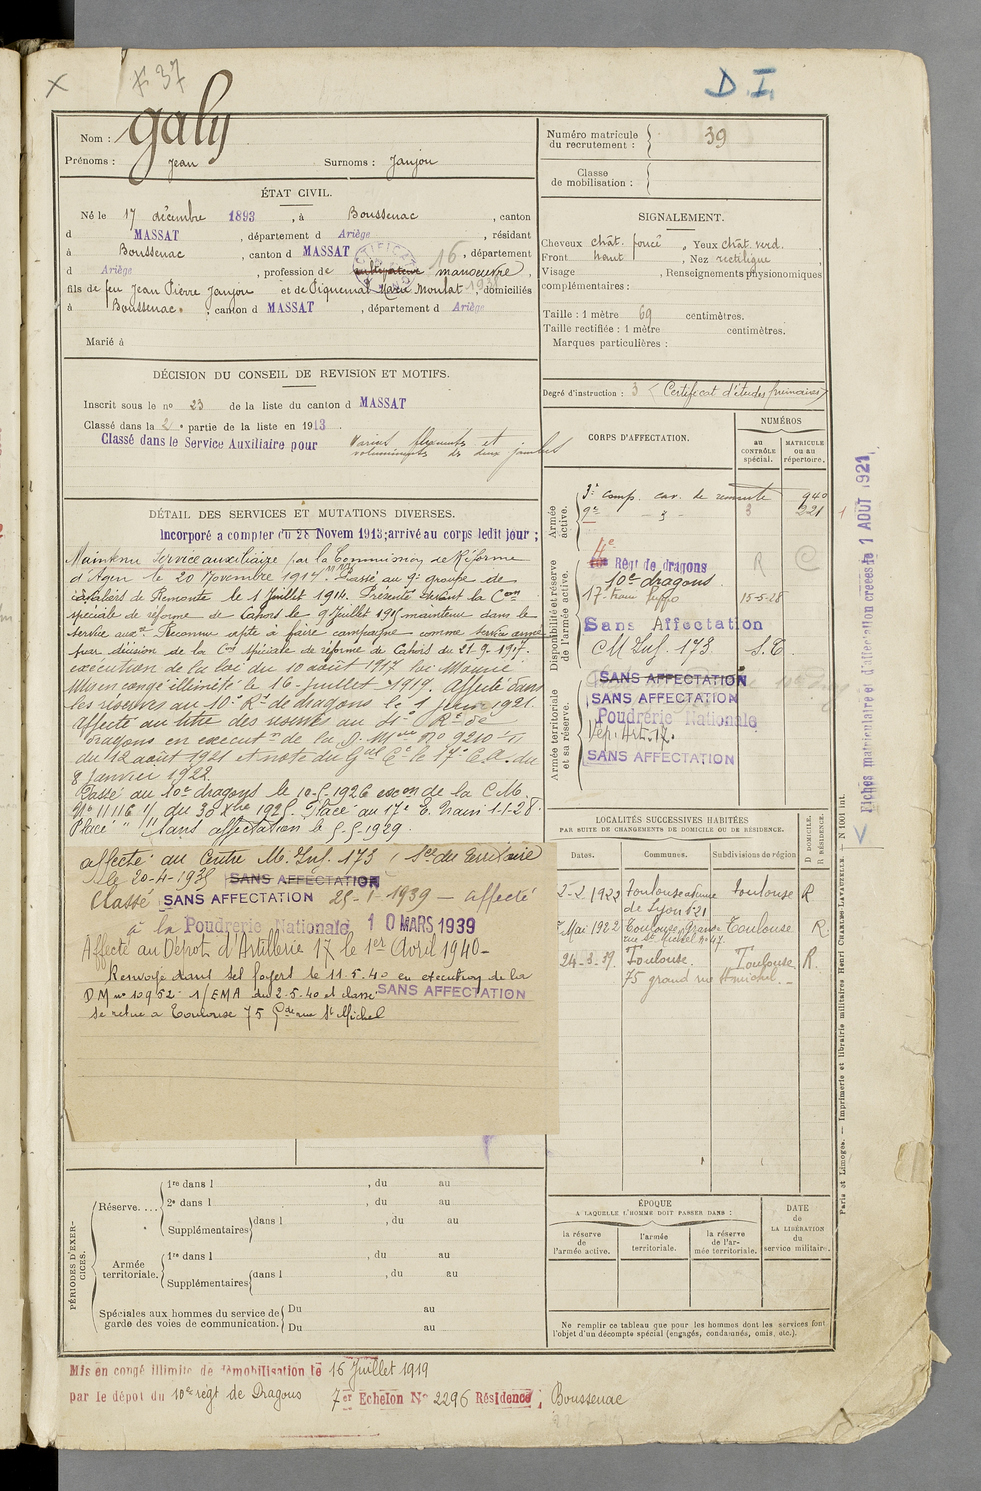 37
D.I.
Nom : Galy
Prénoms : Jean Surnoms : Janjou
ÉTAT CIVIL.
Né le 17 décembre 1893, à Boussenac, canton
d MASSAT, département d Ariège, résidant
à Boussenac, canton d MASSAT, département
d Ariège, profession de cultivateur manoeuvre,
16
fils de feu Jean Pierre Janjou et de Piquemal Marie Moulat, domiciliés
à Boussenac, canton d MASSAT, département d Ariège
Marié à
DÉCISION DU CONSEIL DE REVISION ET MOTIFS.
Inscrit sous le no 23 de la liste du canton d MASSAT
Classé dans la 2e partie de la liste en 1913.
Classé dans le Service Auxiliaire pour Varices et
volumineuses des deux jambes
DÉTAIL DES SERVICES ET MUTATIONS DIVERSES.
Incorporé a compter du 28 Novem 1913; arrivé au corps ledit jour ;
Maintenu Service auxiliaire par la Commission de Réforme
d'Agen le 20 Novembre 1914. Passé au 9e groupe de
cavaliers de Remonte le 1 Juillet 1914. Présenté devant la Con
spéciale de réforme de Cahors le 9 Juillet 1915 maintenu dans le
service auxre. Reconnu apte à faire campagne comme service armé
par décision de la Con spéciale de réforme de Cahors du 21-9-1917.
exécution de la loi du 10 août 1917 loi Mourié
Mis en congé illimité le 16 Juillet 1919. Affecté dans
les réserves au 10e Rt de dragons le 1 1921.
Affecté au titre des réserves au 4e Rt de
dragons en execution de la D. Mlle No 9210
du 12 août 1921 et note du Gal Ct le 17e C.A. du
8 Janvier 1922.
Passé au 10e dragons le 10-5-1926 exon de la C.M.
No 11116 du 30 Xbre 1925. Placé au 17e E. Train 1-1-28.
Placé " " sans affectation le 5-5-1929.
affecté au Centre M. Inf. 173 (Sce du Territoire)
le 20-4-1935 SANS AFFECTATION
Classé SANS AFFECTATION 25-1-1939 - affecté
à la Poudrerie Nationale 10 MARS 1939
Affecté au Dépôt d'Artillerie 17 le 1er Avril 1940-
Renvoyé dans ses foyers le 11.5.40 en exécution de la
DM no 10952-1/EMA du 2-5-40 et classé SANS AFFECTATION
se retire à Toulouse 75 Gde rue St Michel
PÉRIODES D'EXERCICES.
Réserve.... 1re dans l , du au
2e dans l , du au
Supplémentaires dans l , du au
Armée territoriale. 1re dans l , du au
Supplémentaires dans l , du au
Spéciales aux hommes du service de garde des voies de communication. Du au
Du au
Numéro matricule du recrutement : 39
Classe de mobilisation :
SIGNALEMENT.
Cheveux chât. foncé, Yeux chât. verd.
Front haut, Nez rectiligne
Visage , Renseignements physionomiques
complémentaires :
Taille : 1 mètre 69 centimètres.
Taille rectifiée : 1 mètre centimètres.
Marques particulières :
Degré d'instruction : 3 (Certificat d'études primaires)
CORPS D'AFFECTATION.
NUMÉROS
au CONTRÔLE spécial.
MATRICULE ou au répertoire.
Armée active.
3e comp. cav. de remonte 940
9e - 3 - 3 221
Disponibilité et réserve de l'armée active.
4e Régt de dragons R C
10e dragons
17 train 15-5-28
Sans Affectation
CM Inf. 173 S.T.
Armée territoriale et sa réserve.
SANS AFFECTATION
SANS AFFECTATION
Poudrerie Nationale
Dép. Art. 17.
SANS AFFECTATION
LOCALITÉS SUCCESSIVES HABITÉES
PAR SUITE DE CHANGEMENTS DE DOMICILE OU DE RÉSIDENCE.
Dates. Communes. Subdivisions de région
D DOMICILE.
R RÉSIDENCE.
2-2-1922 Toulouse avenue Toulouse R
de Lyon 121
Mai 1922 Toulouse Grande Toulouse R.
rue St Michel no 47.
24-3-39. Toulouse. Toulouse. R.
75 grand rue St michel.
ÉPOQUE
A LAQUELLE L'HOMME DOIT PASSER DANS :
la réserve de l'armée active.
l'armée territoriale.
la réserve de l'armée territoriale.
DATE de LA LIBÉRATION du service militaire.
Ne remplir ce tableau que pour les hommes dont les services font
l'objet d'un décompte spécial (engagés, condamnés, omis, etc.).
Fiches matriculaire et d'affectation creées le 1 AOUT 1921
Paris et Limoges. — Imprimerie et librairie militaires Henri CHARLES-LAVAUZELLE. — N 1001 int.
Mis en congé illimité de démobilisation le 16 Juillet 1919
par le dépot du 10e régt de Dragons 7er Echelon No 2296 Résidence ; Boussenac